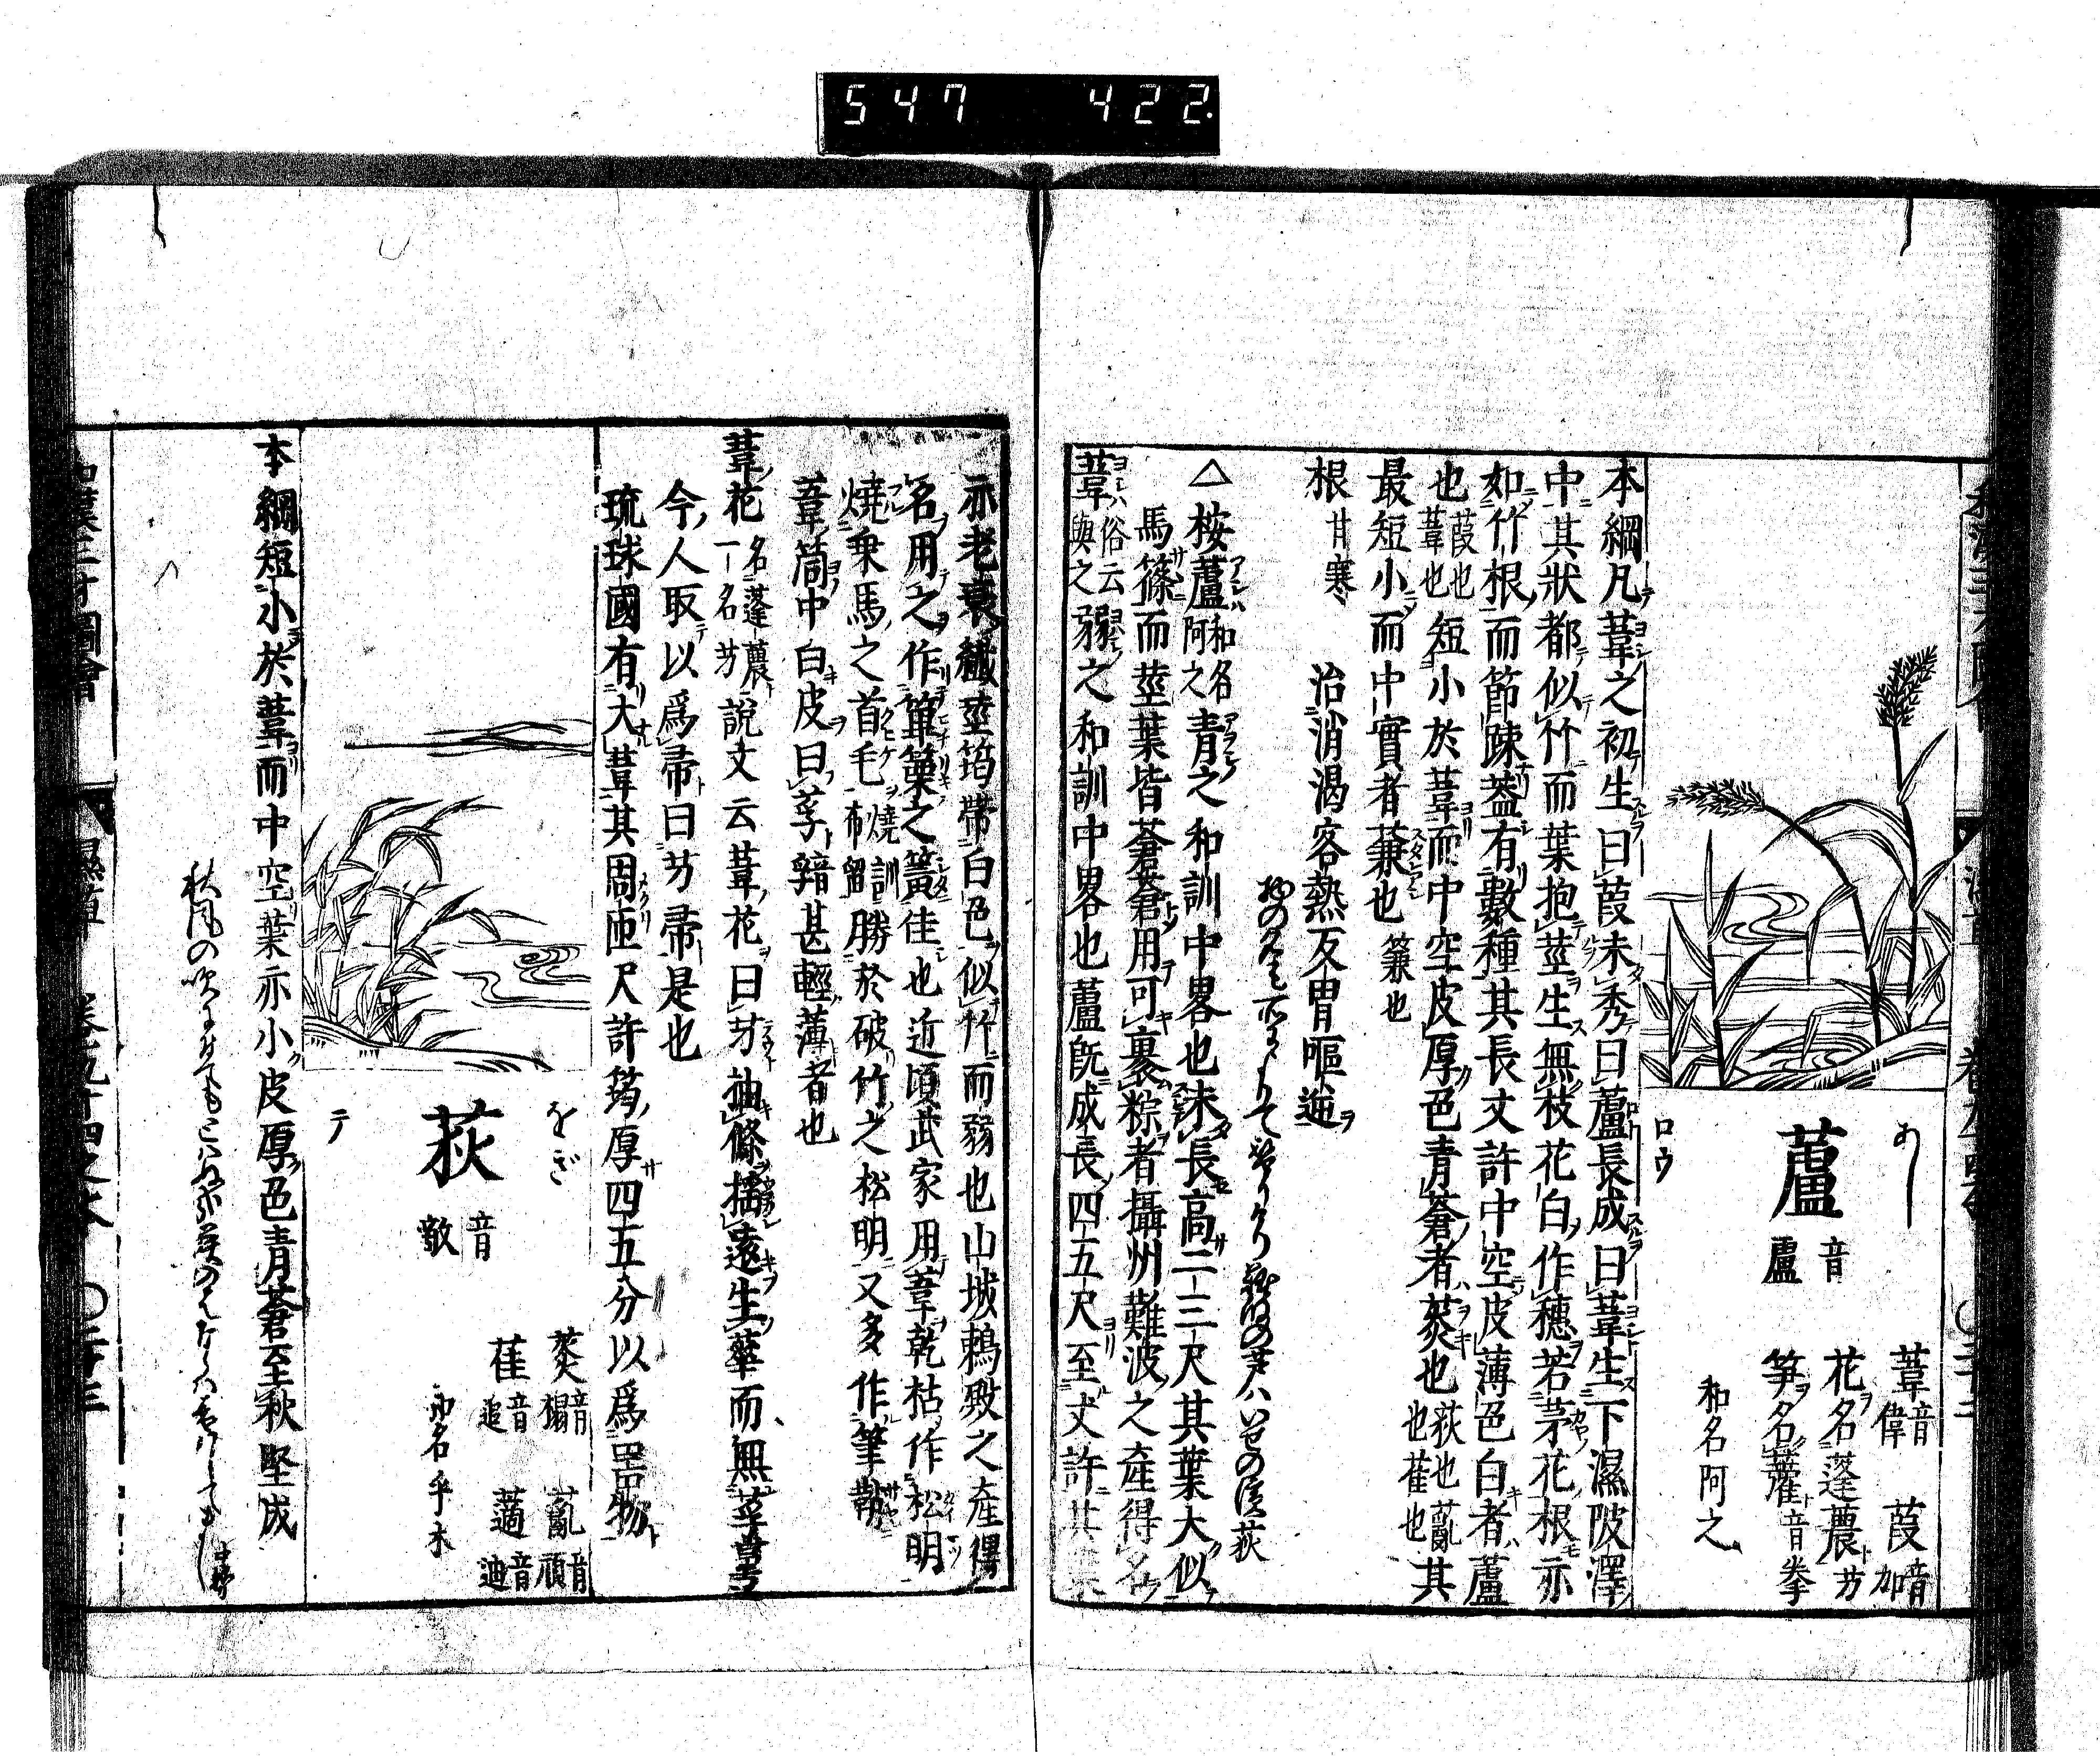 547 422.
あし
蘆
音 盧
ロウ
葦音偉 葭音加
花ヲ名蓬蕽ト 芀
笋ヲ名虇ト音拳
和名阿之
本綱凡葦之初生曰葭未秀曰蘆長成曰葦生下濕陂澤
中其狀都似竹而葉抱莖生無枝花白作穗若茅花根亦
如竹根而節疎葢有數種其長丈許中空皮薄色白者蘆
也葭也葦也短小於葦而中空皮厚色青蒼者菼也荻也薍也萑也其
最短小而中實者蒹也簾也
根甘寒 治消渴客熱反胃嘔逆
物の名も所によりて替りけり難波の芦ハいせの濱荻
△桉蘆和名阿之青之和訓中畧也未長高二三尺其葉大似
馬篠而莖葉皆蒼蒼用可裹粽者攝州難波之產得名
葦俗云與之弱之和訓中畧也蘆既成長四五尺至丈許其葉
亦老衰纎莖筠帶白色似竹而弱也山城鵜殿之產得
名用之作篳篥之簧佳也近頃武家用葦乾枯作松明
燒乗馬之首毛燒訓布留勝於破竹之松明又多作筆鞘
葦筒中白皮曰莩䓮甚輕薄者也
葦花名蓬蕽一名芀說文云葦花曰芀抽條搖遠生華而無莩萼
今人取以爲帚曰芀帚是也
琉球國有大葦其周匝尺許筠厚四五分以爲噐物
をぎ
荻
音 敵
テ
菼音榻 薍音頑
萑音追 藡音迪
和名乎木
本綱短小於葦而中空葉亦小皮厚色青蒼至秋堅成